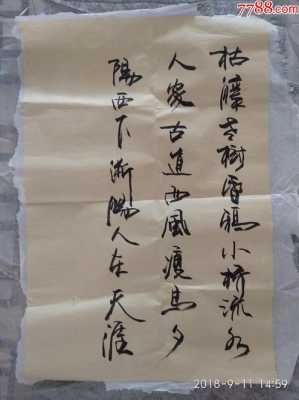 7788.com
枯藤老樹昏鴉小橋流水
人家古道西風瘦馬夕
陽西下断腸人在天涯
2018-9-11 14:59